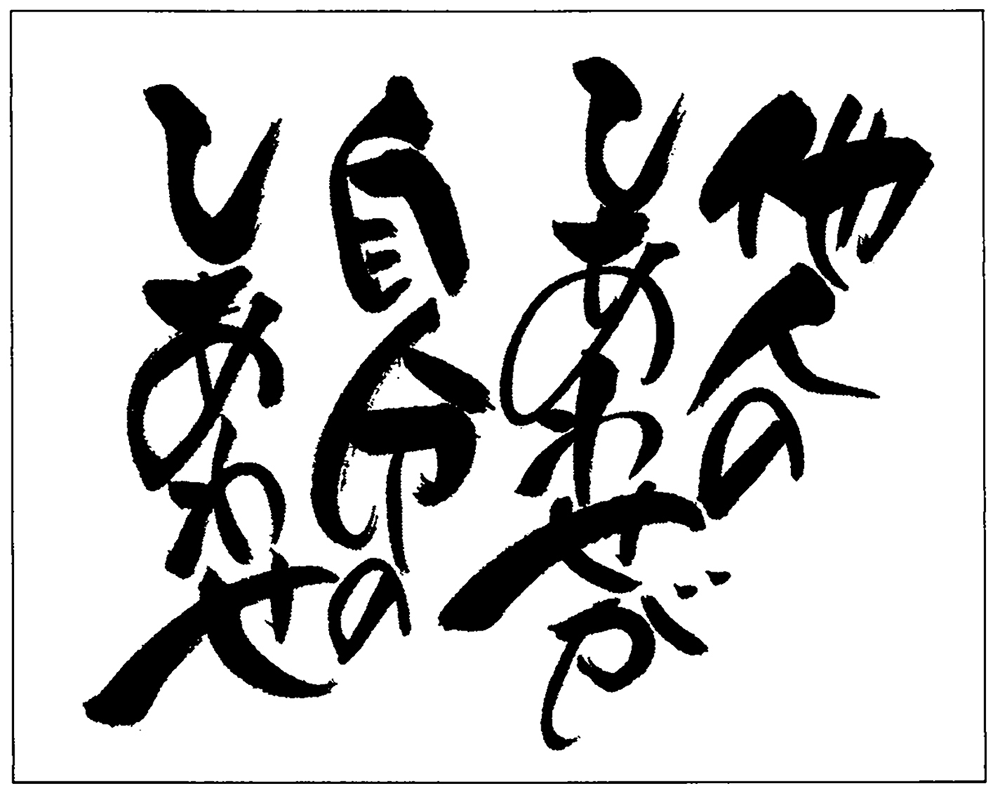 他人の
しあわせが
自分の
しあわせ